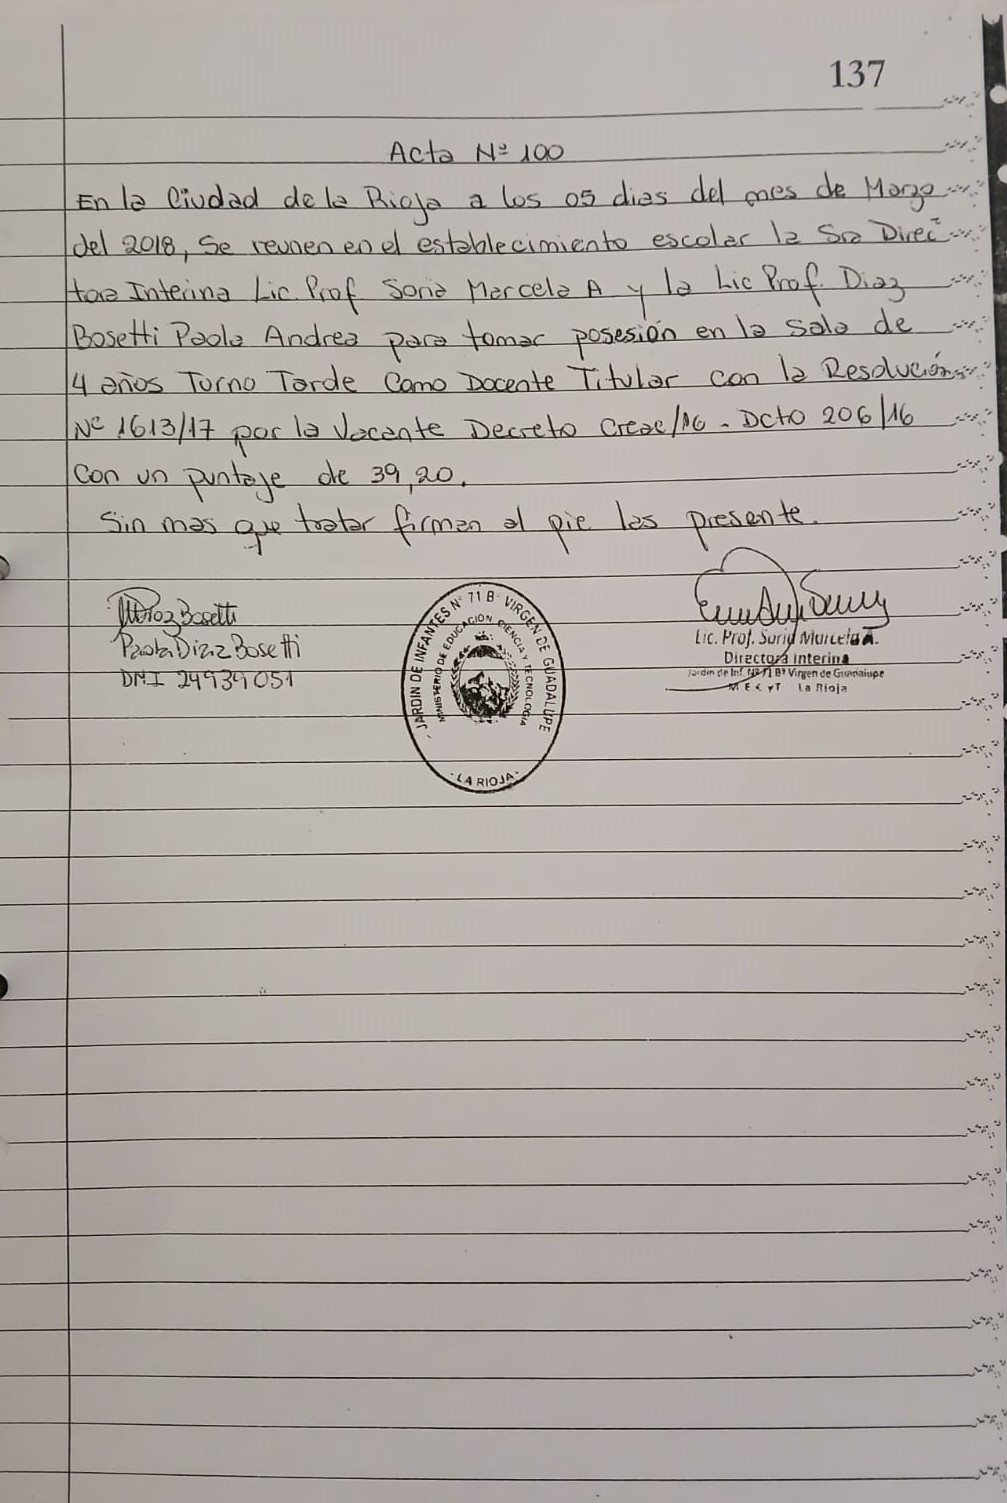 137
Acta Nº 100
En la Ciudad de la Rioja a los 05 dias del mes de Marzo
del 2018, Se reunen en el establecimiento escolar la Sra Direc
tora Interina Lic. Prof Soria Marcela A y la Lic Prof. Diaz
Bosetti Paola Andrea para tomar posesión en la sala de
4 años Turno Tarde Como Docente Titular con la Resolución
Nº 1613/17 por la Vacante Decreto Creac/16 - Dcto 206/16
Con un puntaje de 39,20.
Sin mas que tratar firman al pie las presente.
Diaz Bosetti
Paola Diaz Bosetti
DNI 24939051
JARDIN DE INFANTES Nº 71 B· VIRGEN DE GUADALUPE
MINISTERIO DE EDUCACION CIENCIA Y TECNOLOGIA
· LA RIOJA ·
Lic. Prof. Soria Marcela A.
Directora Interina
Jardin de Inf. Nº 71 Bº Virgen de Guadalupe
M E C y T La Rioja